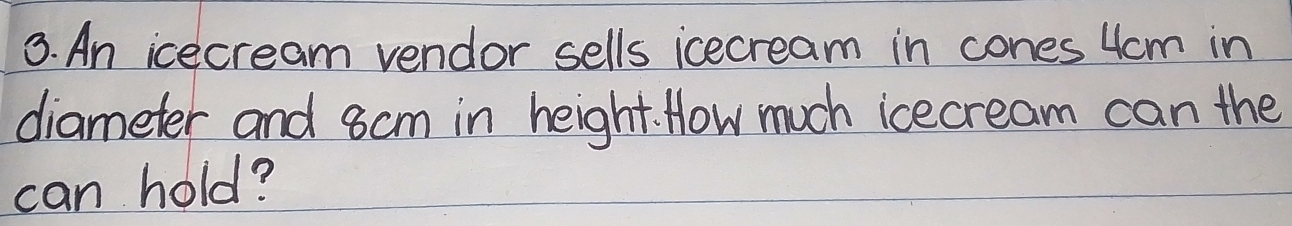 3. An icecream vendor sells icecream in cones 4cm in
diameter and 8cm in height. How much icecream can the
can hold?